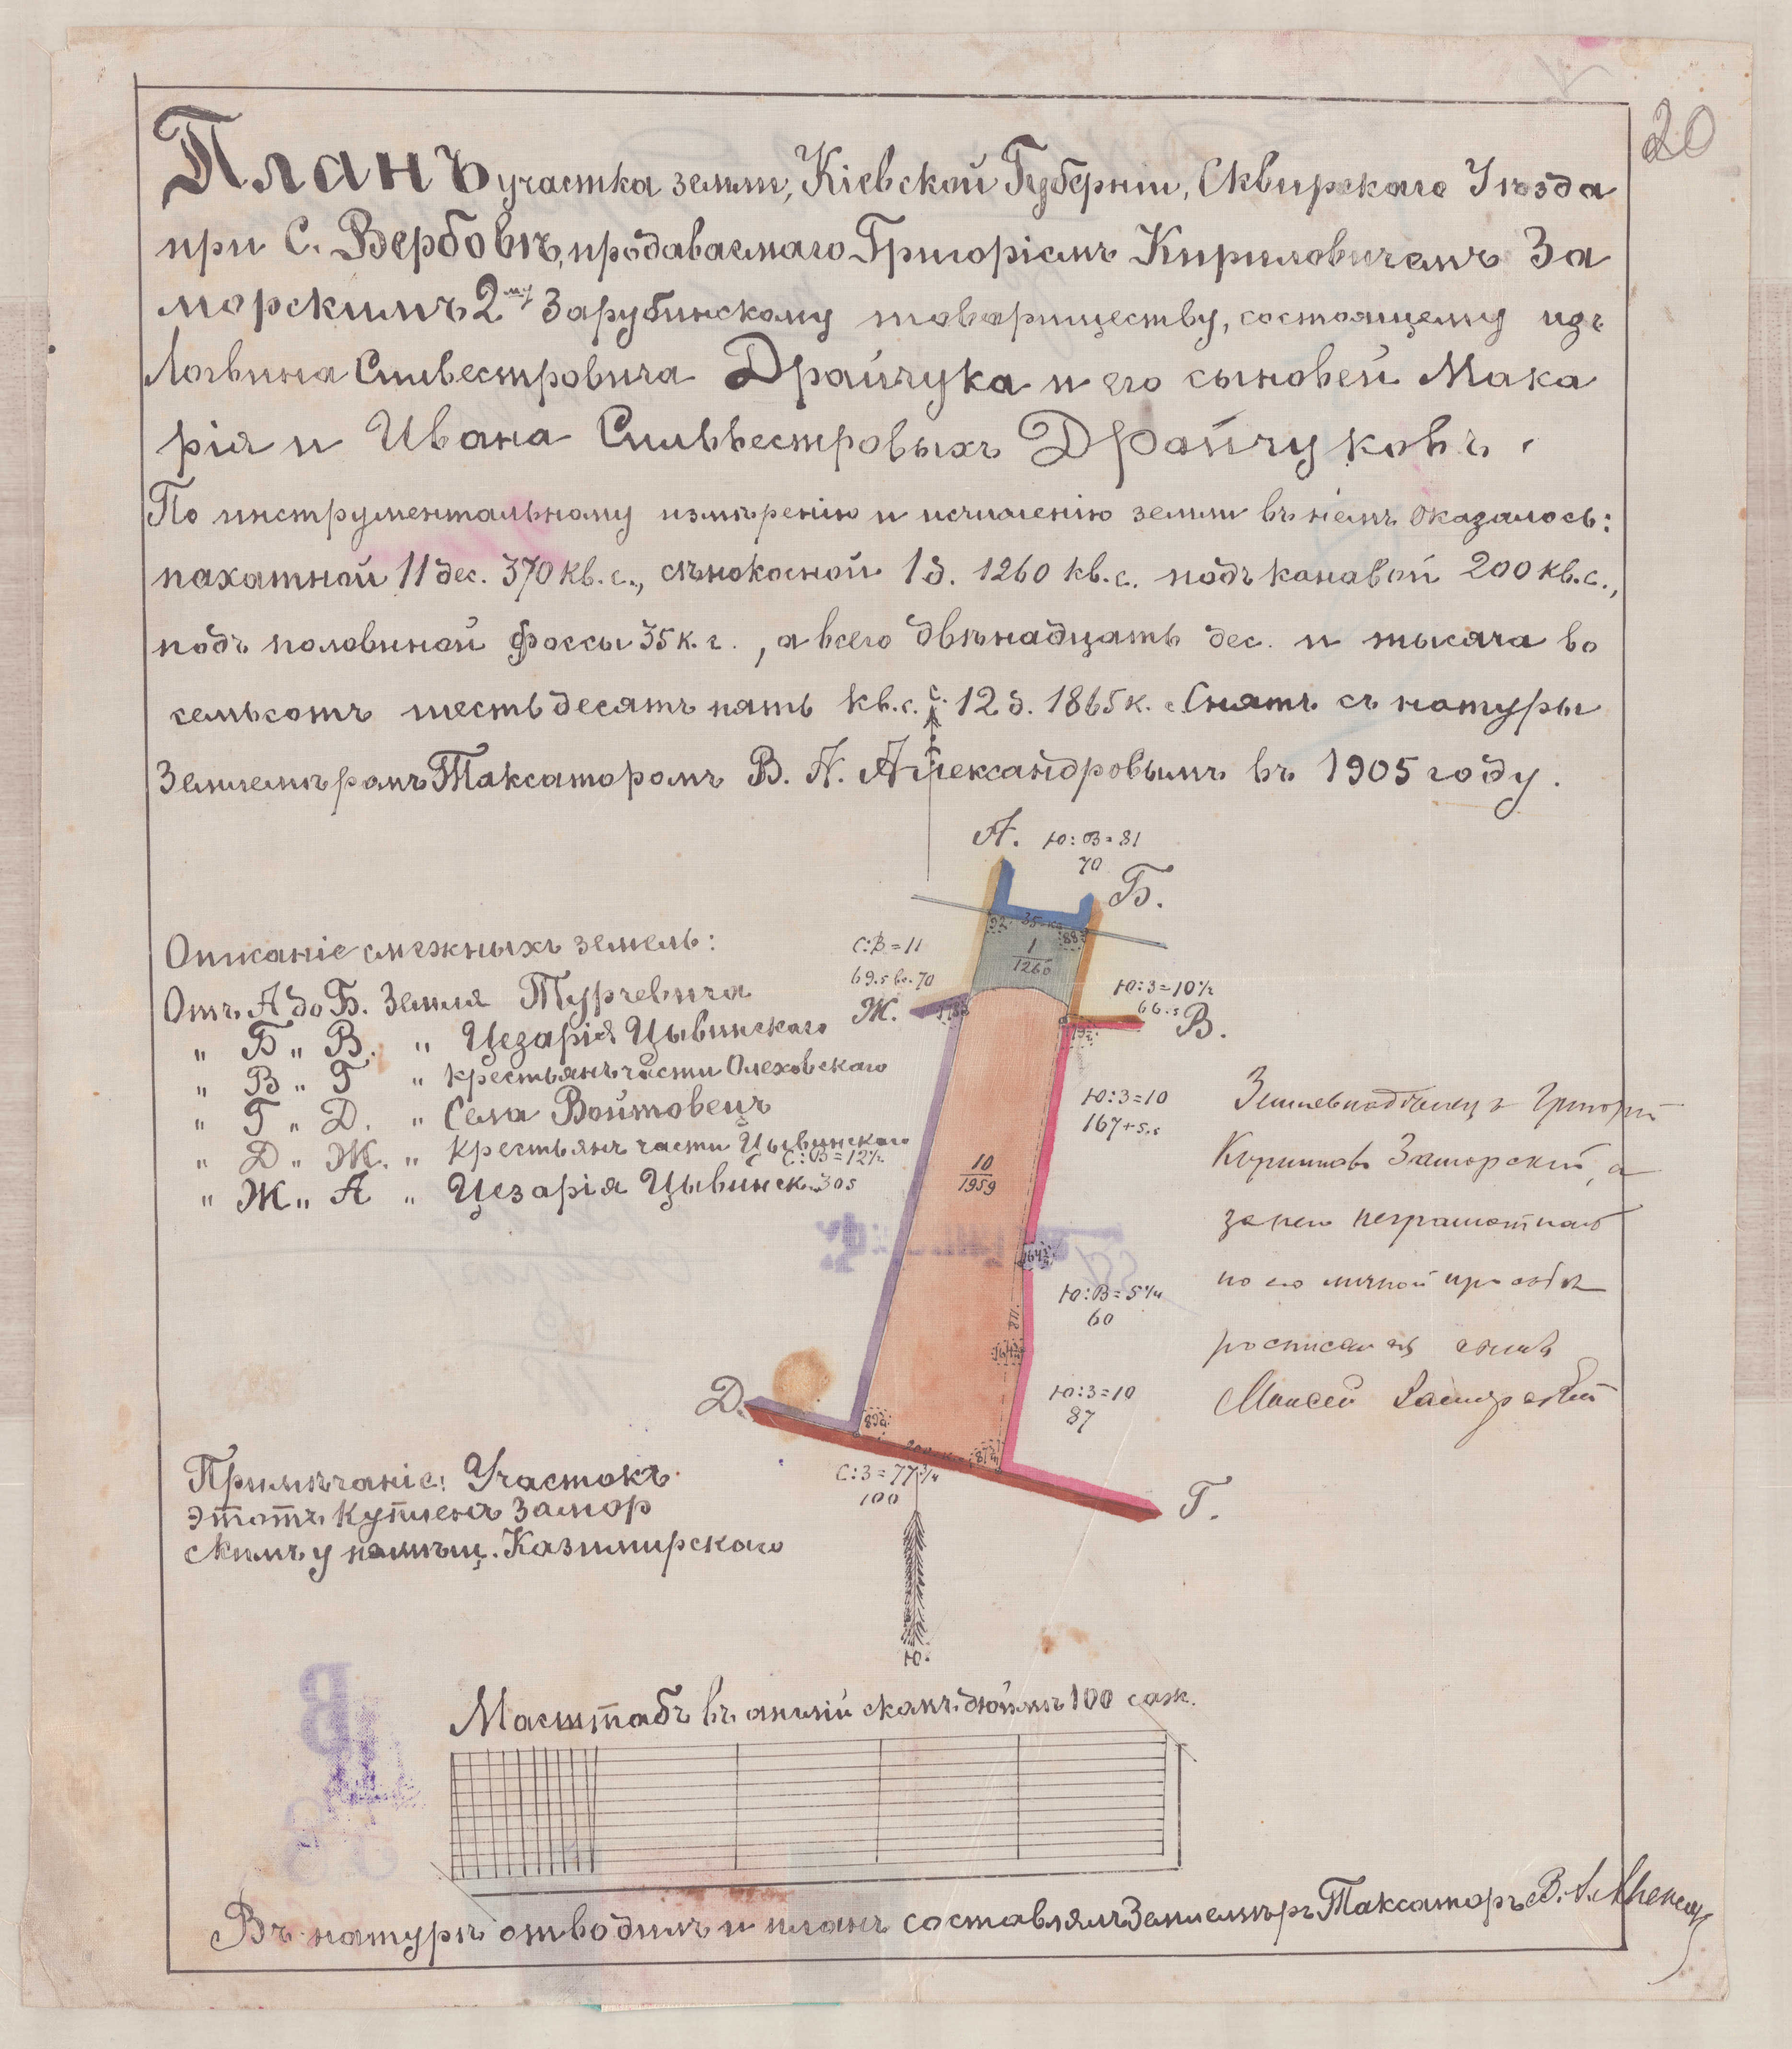 20
Планъ участка земли, Кіевской Губерніи, Сквирскаго Уѣзда
при С. Вербовкѣ, продаваемаго Григоріемъ Кириловичемъ За
морскимъ 2му Зарубинскому товариществу, состоящему изъ
Логвина Сильвестровича Драйчука и его сыновей Мака
рія и Ивана Сильвестровыхъ Драйчуковъ.
По инструментальному измѣренію и исчисленію земли въ немъ оказалось:
пахатной 11 дес. 370 кв. с., сѣнокосной 1 д. 1260 кв. с. подъ канавой 200 кв. с.,
подъ половиной фоссы 35 к. с., а всего двѣнадцать дес. и тысяча во
семьсотъ шестьдесятъ пять кв. с. 12 д. 1865 к. с. Снятъ съ натуры
Землемѣромъ Таксаторомъ В. А. Александровымъ въ 1905 году.
С.
А. Ю:В=81
70
Б.
92 35 к. с. 88
1
1260
С:В=11
69.5 вс. 70
Ж.
Ю:З=10½
66.5
В.
Описаніе смежныхъ земель:
Отъ А до Б. Земля Турчевича
„ Б „ В. „ Цезарія Цывинскаго
„ В „ Г „ Крестьянъ части Олеховскаго
„ Г „ Д. „ Села Войтовецъ
„ Д „ Ж. „ Крестьянъ части Цывинскаго
„ Ж „ А „ Цезарія Цывинск.
С:В=12½
305
Ю:З=10
167+5.5
10
1959
Ю:В=5¼
60
Ю:З=10
87
Д.
Г.
С:З=77¾
100
Землевладѣлецъ Григорій
Кириловъ Заморскій, а
за него неграмотнаго
по его личной просьбѣ
росписался сынъ
Моисей Заморскій
Примѣчаніе: Участокъ
этотъ купленъ Замор
скимъ у помѣщ. Казимирскаго
Ю.
Масштабъ въ англійскомъ дюймѣ 100 саж.
Въ натурѣ отводилъ и планъ составлялъ Землемѣръ Таксаторъ В. А.